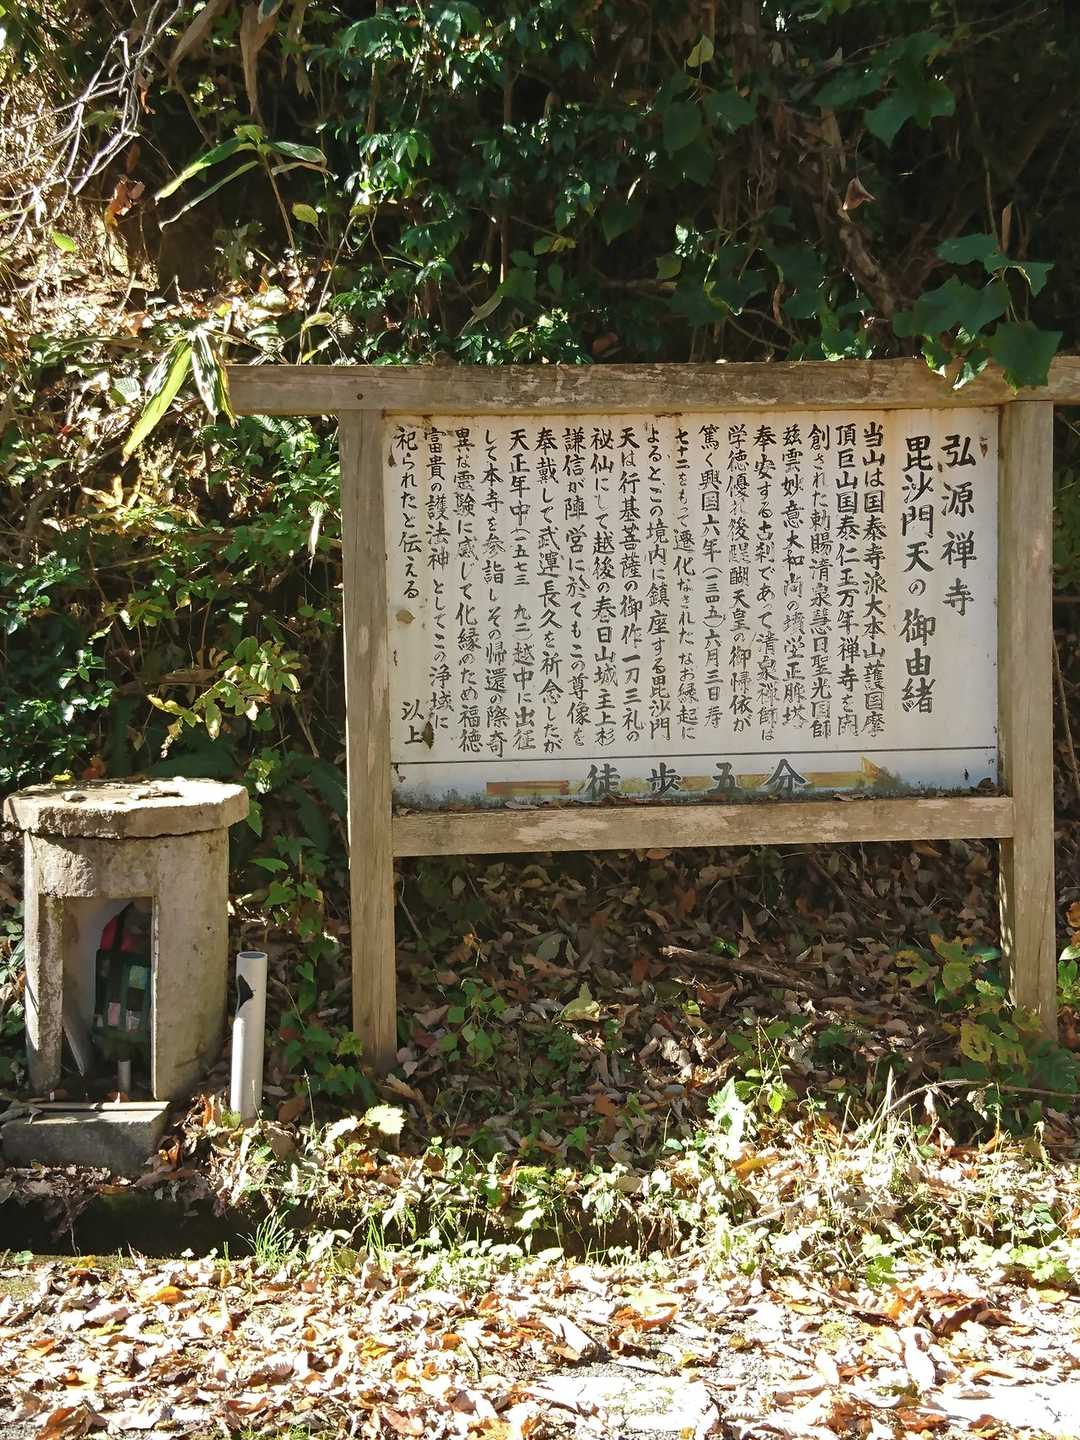 弘源禅寺
毘沙門天の御由緒
当山は国泰寺派大本山護国摩
頂巨山国泰仁王万年禅寺を開
創された勅賜清泉慧日聖光国師
慈雲妙意大和尚の墳堂正脈塔
奉安する古刹であって清泉禅師は
学徳優れ後醍醐天皇の御帰依が
篤く興国六年(一三四五)六月三日寿
七十二をもって遷化なされた なお縁起に
よるとこの境内に鎮座する毘沙門
天は行基菩薩の御作 一刀三礼の
秘仙にして越後の春日山城主上杉
謙信が陣営に於てもこの尊像を
奉戴して武運長久を祈念したが
天正年中(一五七三 九二)越中に出征
して本寺を参詣しその帰還の際奇
異な霊験に感じて化縁のため福徳
富貴の護法神 としてこの浄域に
祀られたと伝える
以上
徒歩五分